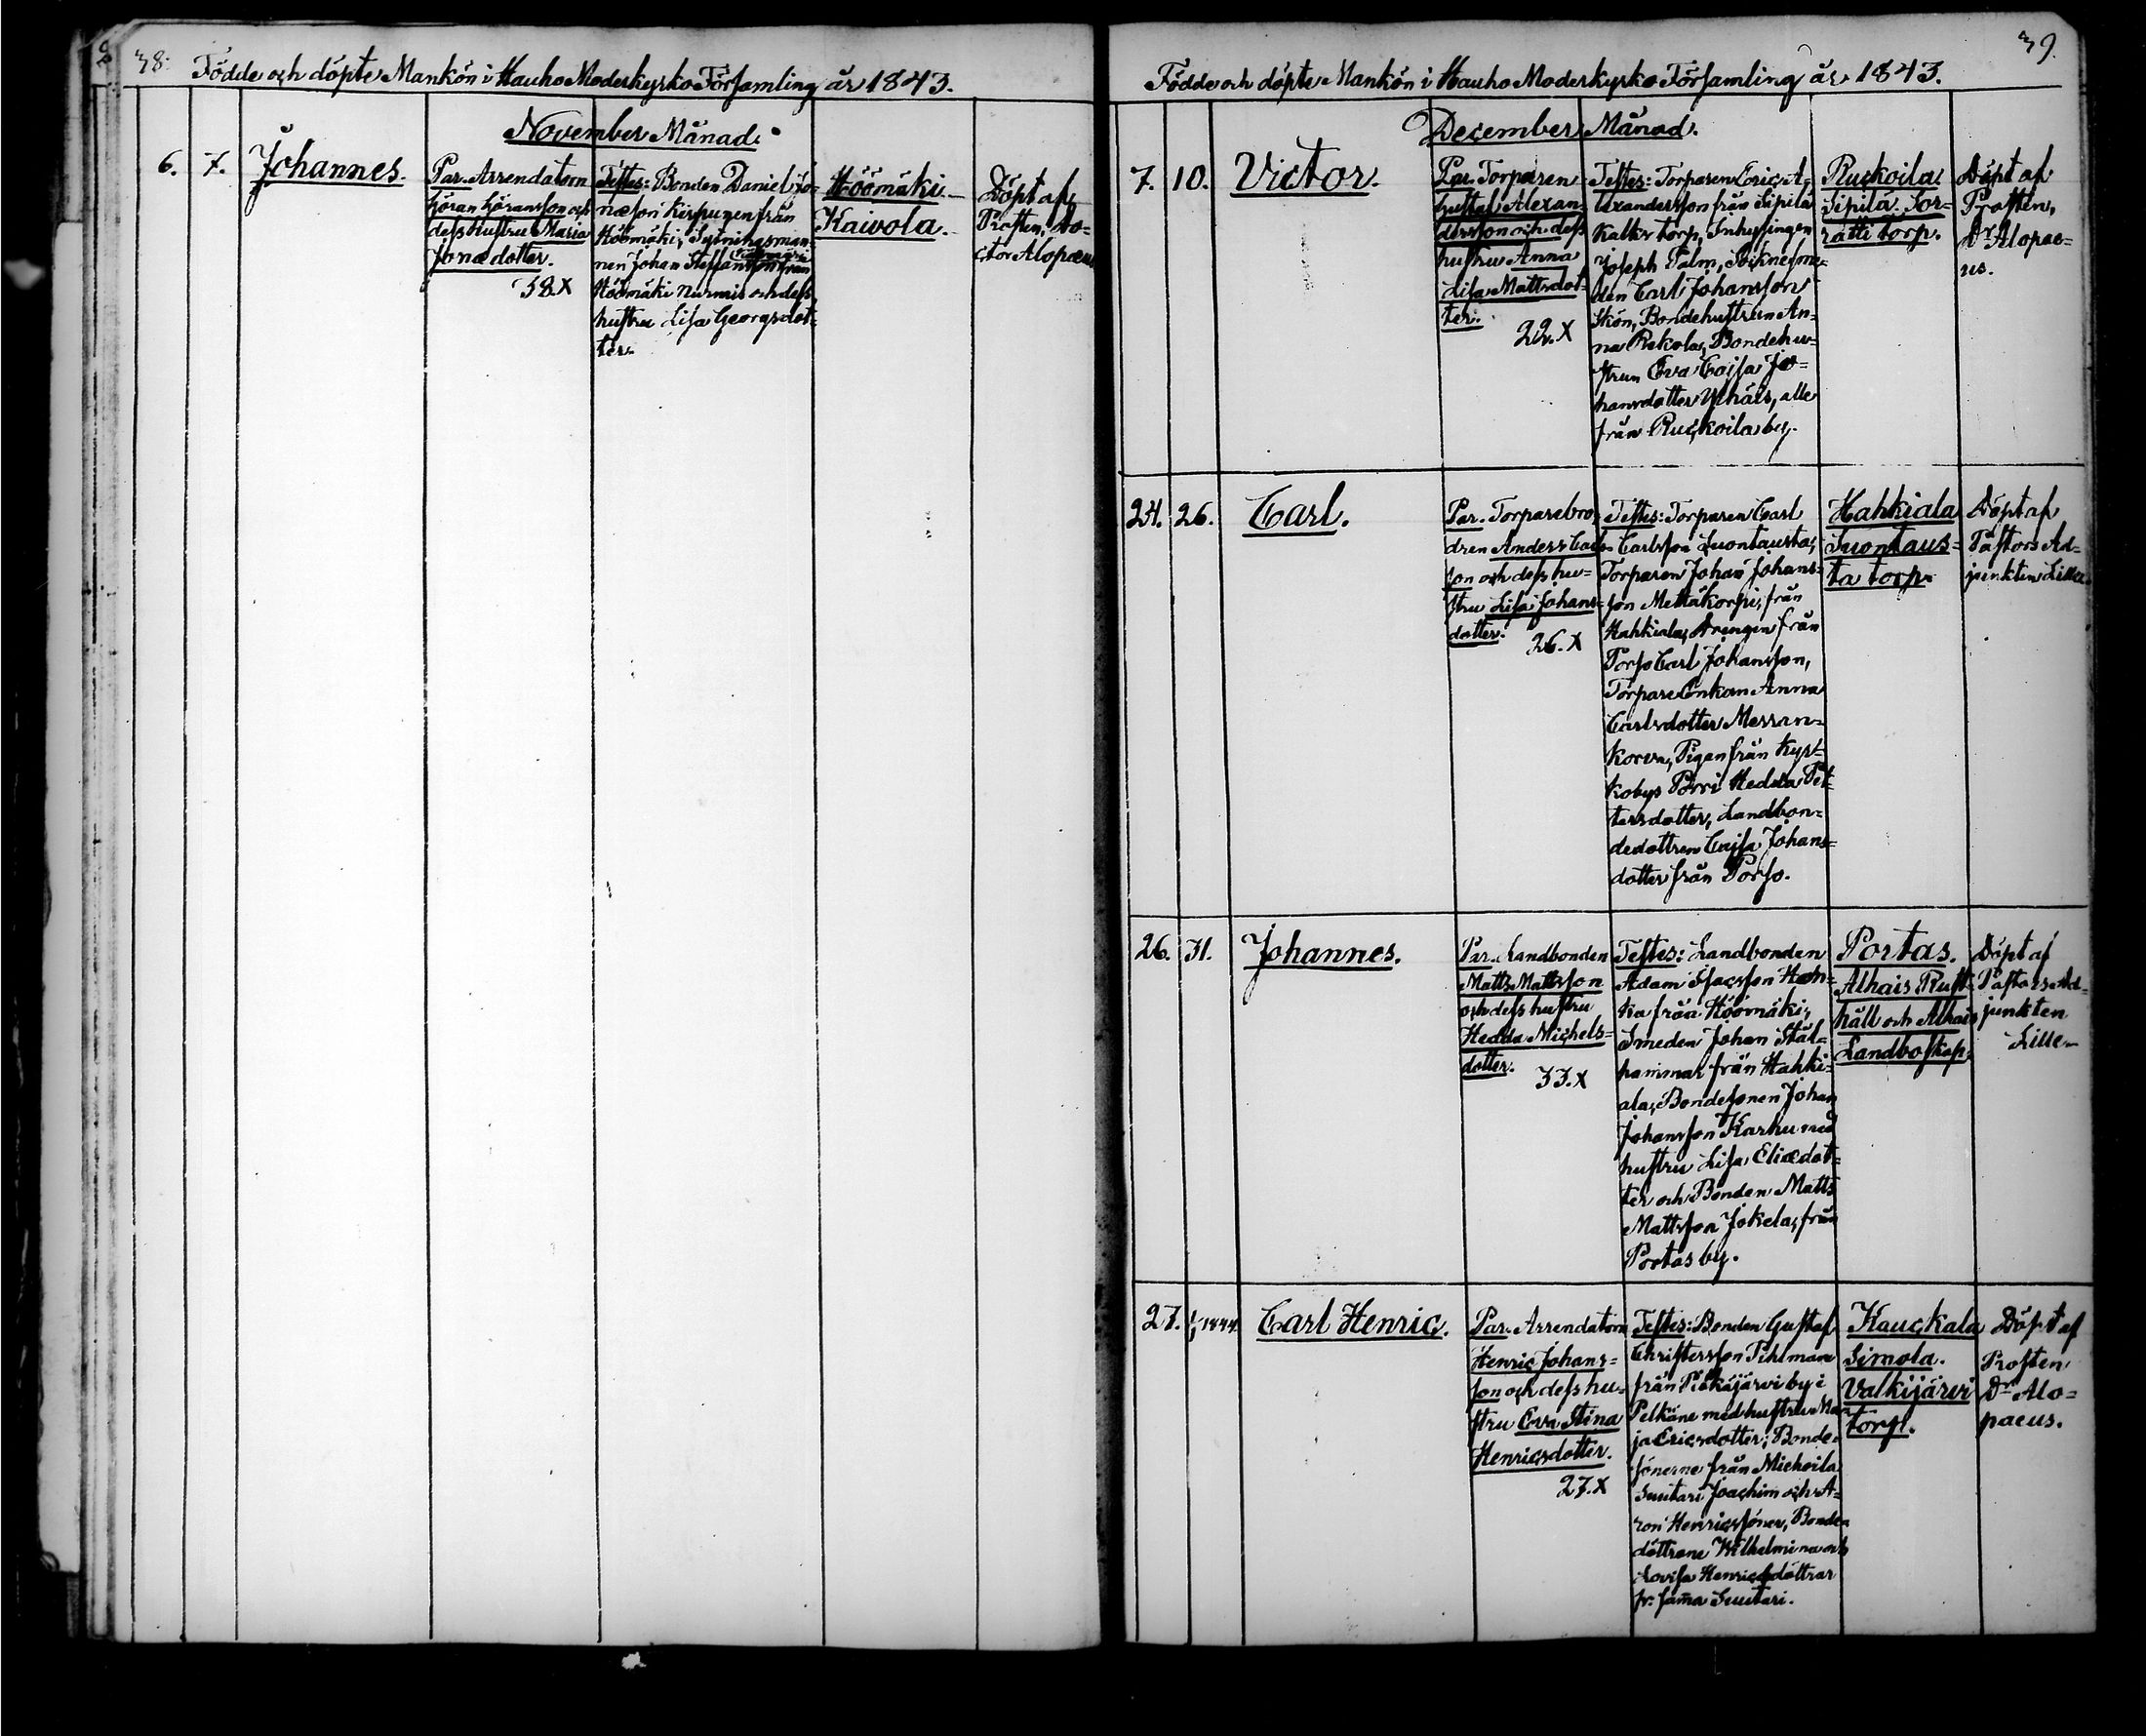 38.
Födde och döpte Mankön i Hauho Moderkyrko Församling år 1843.
November Månad.
6. 7. Johannes.
Par. Arrendatorn
Göran Göransson och
dess hustru Maria
Jonædotter.
38.X
Testes: Bonden Daniel Jo-
næson Kirpunen från
Höömäki, Sytningsman-
nen Johan Staffansson från
Höömäki Nurmis och dess
hustru Lisa Georgsdot-
ter.
Höömäki
Kaivola.
Döpt af
Prosten, Do-
ctor Alopæus
39.
Födde och döpte Mankön i Hauho Moderkyrko Församling år 1843.
December Månad.
7. 10. Victor.
Par. Torparen
Gustaf Alexan-
dersson och dess
hustru Anna
Lisa Mattsdot-
ter.
22.X
Testes: Torparen Eric A-
lexandersson från Sipilä
Kalks torp, Inhysingen
Joseph Palm, Sockneso-
den Carl Johansson
Skön, Bondehustrun An-
na Rekola, Bondehu-
strun Eva Cajsa Jo-
hansdotter Yrhäis, alle
från Ruckoila by.
Ruckoila
Sipilä. Sor-
ratti torp.
Döpt af
Prosten,
Dr Alopae-
us.
24. 26. Carl.
Par. Torparebro-
dren Anders Carls-
son och dess hu-
stru Lisa Johans-
dotter.
26.X
Testes: Torparen Carl
Carlsson Suontausta,
Torparen Johan Johans-
son Mettäkorpi, från
Hahkiala, Drengen från
Porso Carl Johansson,
Torpare Enkan Anna
Carlsdotter Messan-
korva, Pigan från Kyrk-
kobys Pörri Hedda Pet-
tersdotter, Landbon-
dedottren Cajsa Johans-
dotter från Porso.
Hahkiala
Suontaus-
ta torp.
Döpt af
Pastors Ad-
junkten Lille
26. 31. Johannes.
Par. Landbonden
Matts Mattsson
och dess hustru
Hedda Michels-
dotter.
33.X
Testes: Landbonden
Adam Isacsson Hah-
ka från Höömäki,
Smeden Johan Stål-
hammar från Hahki-
ala, Bondesonen Johan
Johansson Karhu med
hustru Lisa Eliædot-
ter och Bonden Matts
Mattsson Jokela, från
Portas by.
Portas.
Alhais Rust-
håll och Alhais
Landboskap.
Döpt af
Pastors Ad-
junkten
Lille
27. 1/1 1844. Carl Henric.
Par. Arrendatorn
Henric Johans-
son och dess hu-
stru Eva Stina
Henricsdotter.
27.X
Testes: Bonden Gustaf
Christersson Pihlman
från Pitkäjärvi by i
Pelkäne med hustru Ma-
ja Ericsdotter; Bonde-
sönerne från Miehoila
Suutari Joachim och A-
ron Henricssöner, Bonde-
döttrane Wilhelmina och
Lovisa Henricsdöttrar
fr. sama Suutari.
Hauckala
Simola.
Valkijärvi
torp.
Döpt af
Prosten
Dr Alo-
paeus.